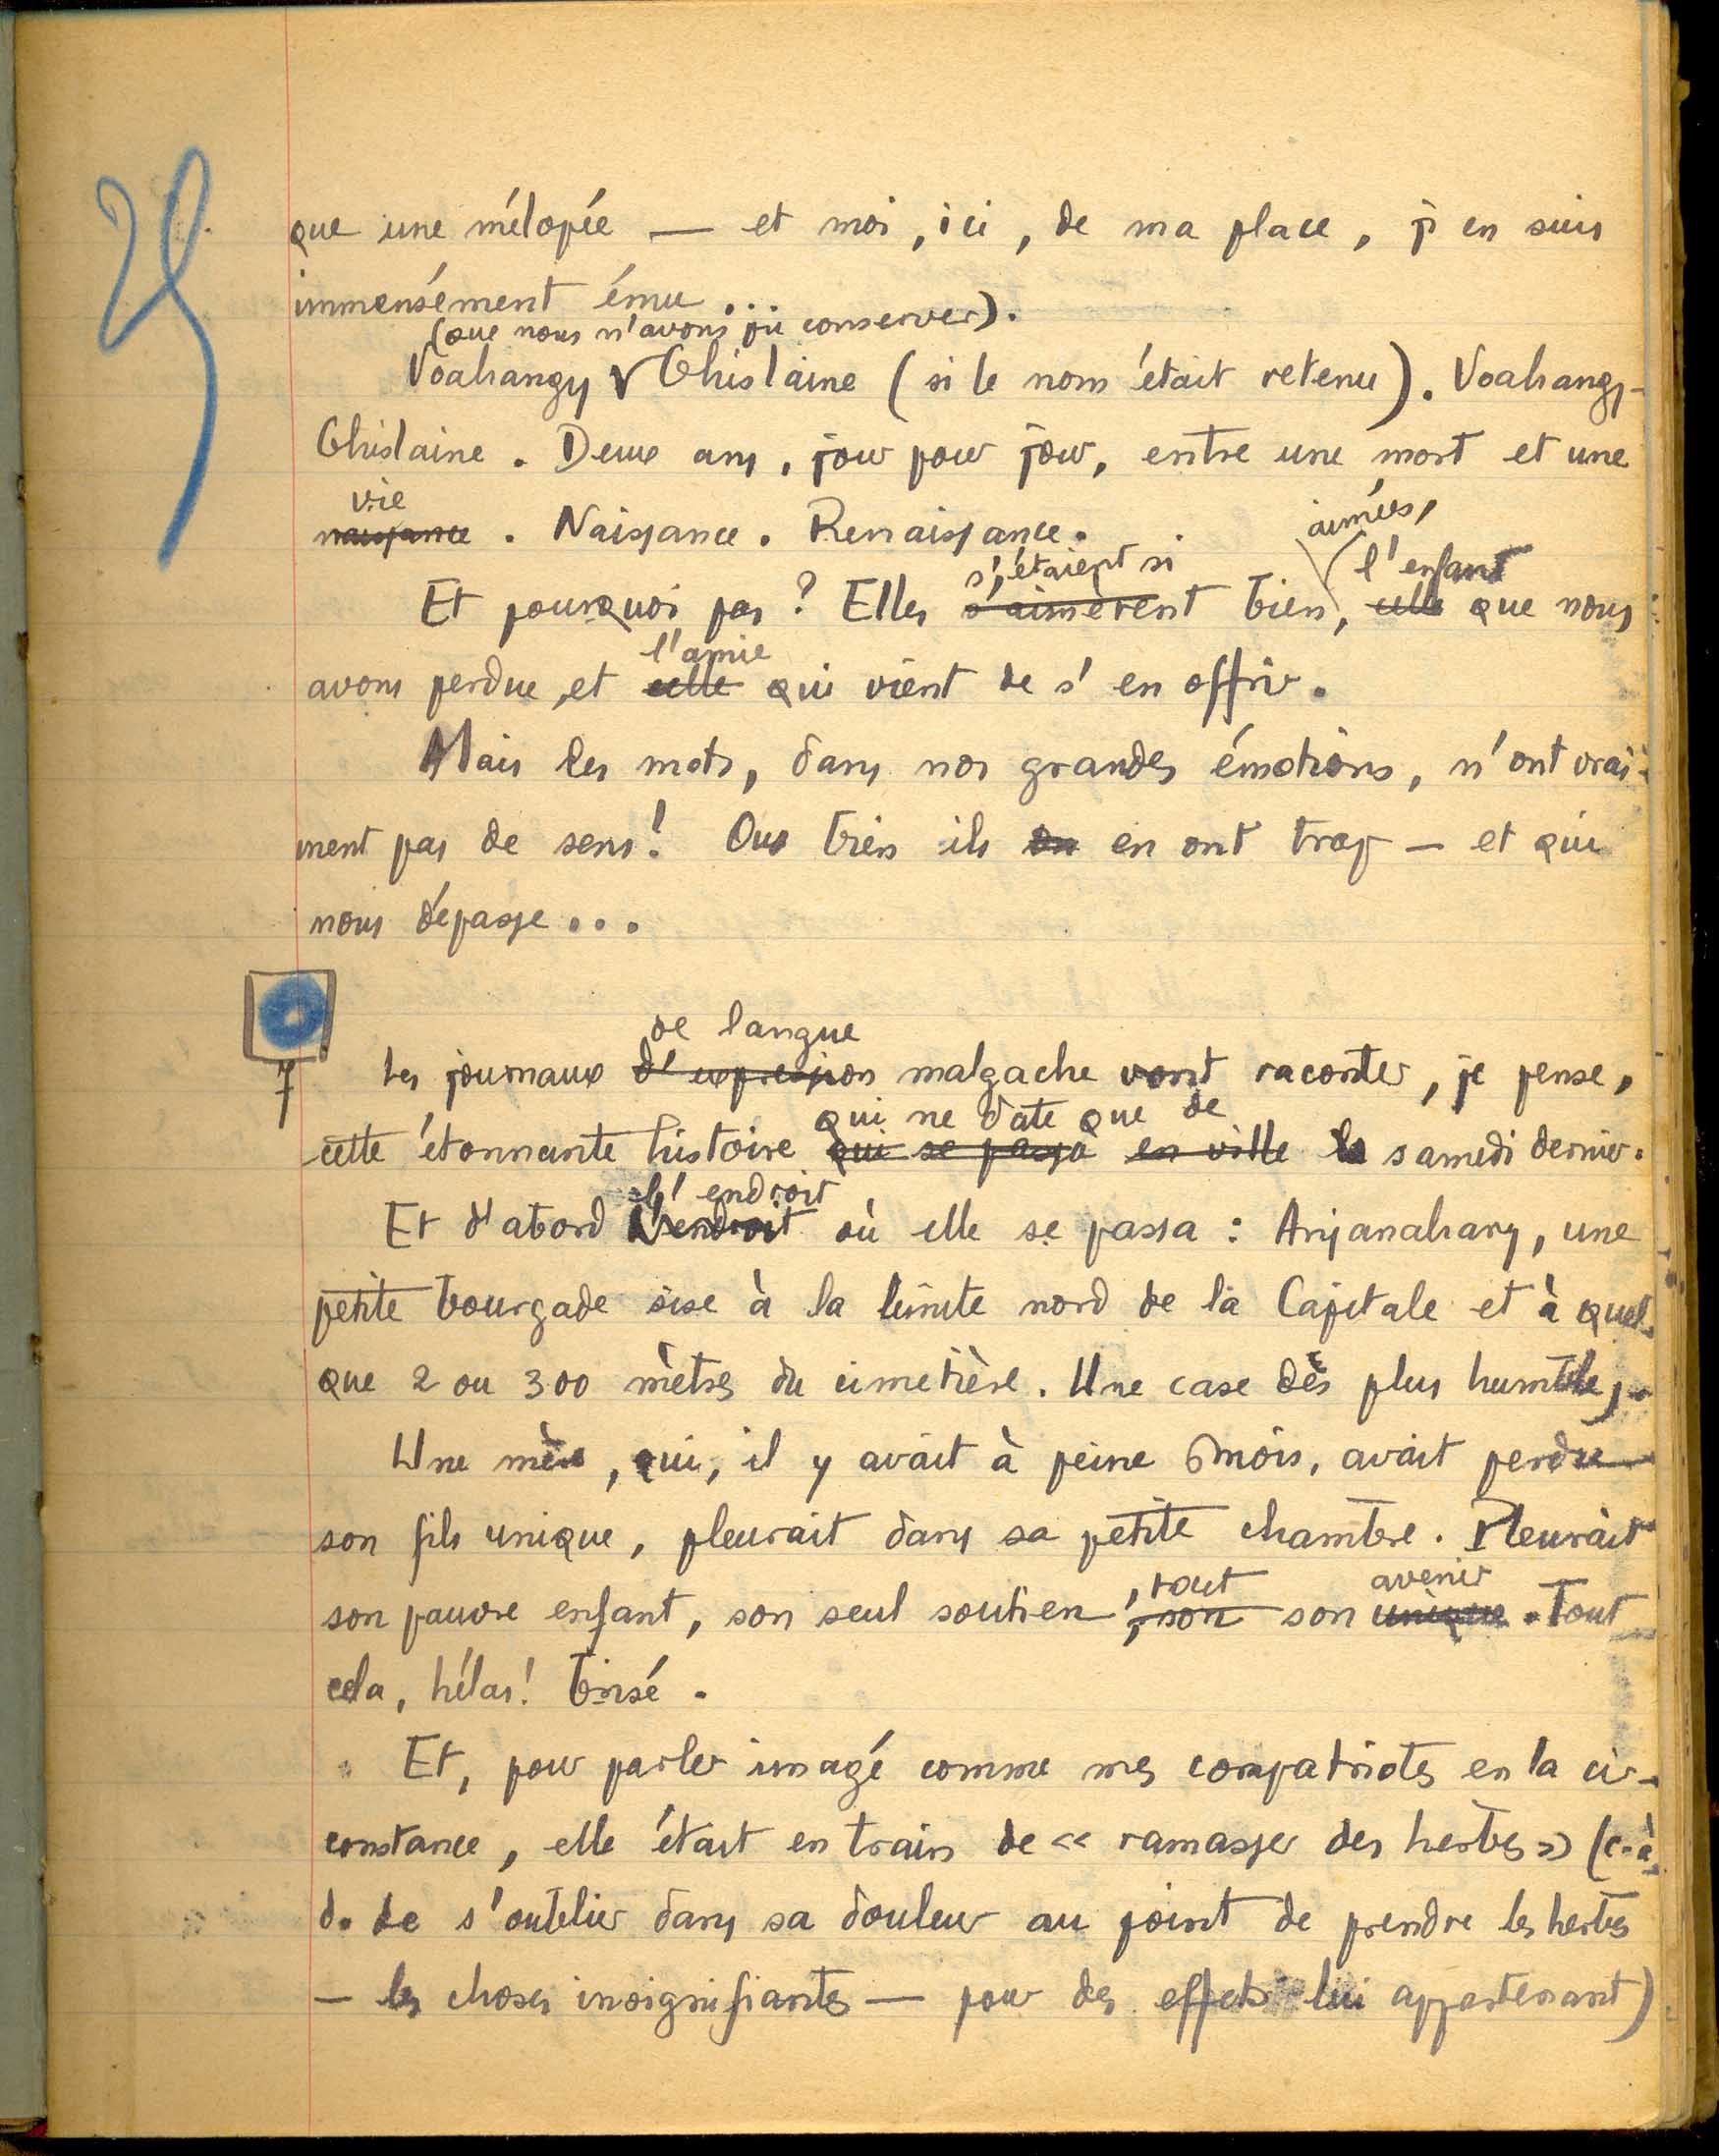 que une mélopée — et moi, ici, de ma place, j'en suis
immensément ému...
(que nous n'avons pu conserver).
Voahangy Ghislaine (si le nom était retenu). Voahangy-
Ghislaine. Deux ans, jour pour jour, entre une mort et une
vie
naissance. Naissance. Renaissance.
aimées,
s'étaient si
l'enfant
Et pourquoi pas ? Elles s'aimèrent bien, celle que nous
l'amie
avons perdue, et celle qui vient de s'en offrir.
Mais les mots, dans nos grandes émotions, n'ont vrai-
ment pas de sens! Ou bien ils en ont trop — et qui
nous dépasse...
de langue
7 Les journaux d'expression malgache vont raconter, je pense,
qui ne date que de
cette étonnante histoire qui se passa en ville samedi dernier.
l'endroit
Et d'abord l'endroit où elle se passa : Anjanahary, une
petite bourgade sise à la limite nord de la Capitale et à quel-
que 2 ou 300 mètres du cimetière. Une case des plus humbles.
Une mère, qui, il y avait à peine 6 mois, avait perdu
son fils unique, pleurait dans sa petite chambre. Pleurait
, tout avenir
son pauvre enfant, son seul soutien, son son unique. Tout
cela, hélas! brisé.
Et, pour parler imagé comme mes compatriotes en la cir-
constance, elle était en train de « ramasser des herbes » (c.à
d. de s'oublier dans sa douleur au point de prendre les herbes
— les choses insignifiantes — pour des effets lui appartenant)